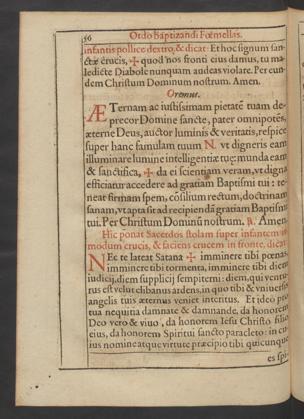 56 Ordo baptizandi Fœmellas.
infantis pollice dextro, & dicat: Et hoc signum san-
ctæ crucis, ✠ quod nos fronti eius damus, tu ma-
ledicte Diabole nunquam audeas violare. Per eun-
dem Christum Dominum nostrum. Amen.
Oremus.
ÆTernam ac iustissimam pietatē tuam de-
precor Domine sancte, pater omnipotēs,
æterne Deus, auctor luminis & veritatis, respice
super hanc famulam tuum N. vt digneris eam
illuminare lumine intelligentiæ tuę: munda eam
& sanctifica, ✠ da ei scientiam veram, vt digna
efficiatur accedere ad gratiam Baptismi tui: te-
neat firmam spem, cōsilium rectum, doctrinam
sanam, vt apta sit ad recipiendā gratiam Baptismi
tui. Per Christum Dominū nostrum. ℟. Amen.
Hic ponat Sacerdos stolam super infantem in
modum crucis, & faciens crucem in fronte, dicat:
NEc te lateat Satana ✠ imminere tibi pœnas,
imminere tibi tormenta, imminere tibi diem
iudicij, diem supplicij sempiterni: diem, qui ventu-
rus est velut clibanus ardens, in quo tibi & vniuersis
angelis tuis æternus veniet interitus. Et ideo pro
tua nequitia damnate & damnande, da honorem
Deo vero & viuo, da honorem Iesu Christo filio
eius, da honorem Spiritui sancto paracleto: in cu-
ius nomine atque virtute præcipio tibi quicunque
es spi-